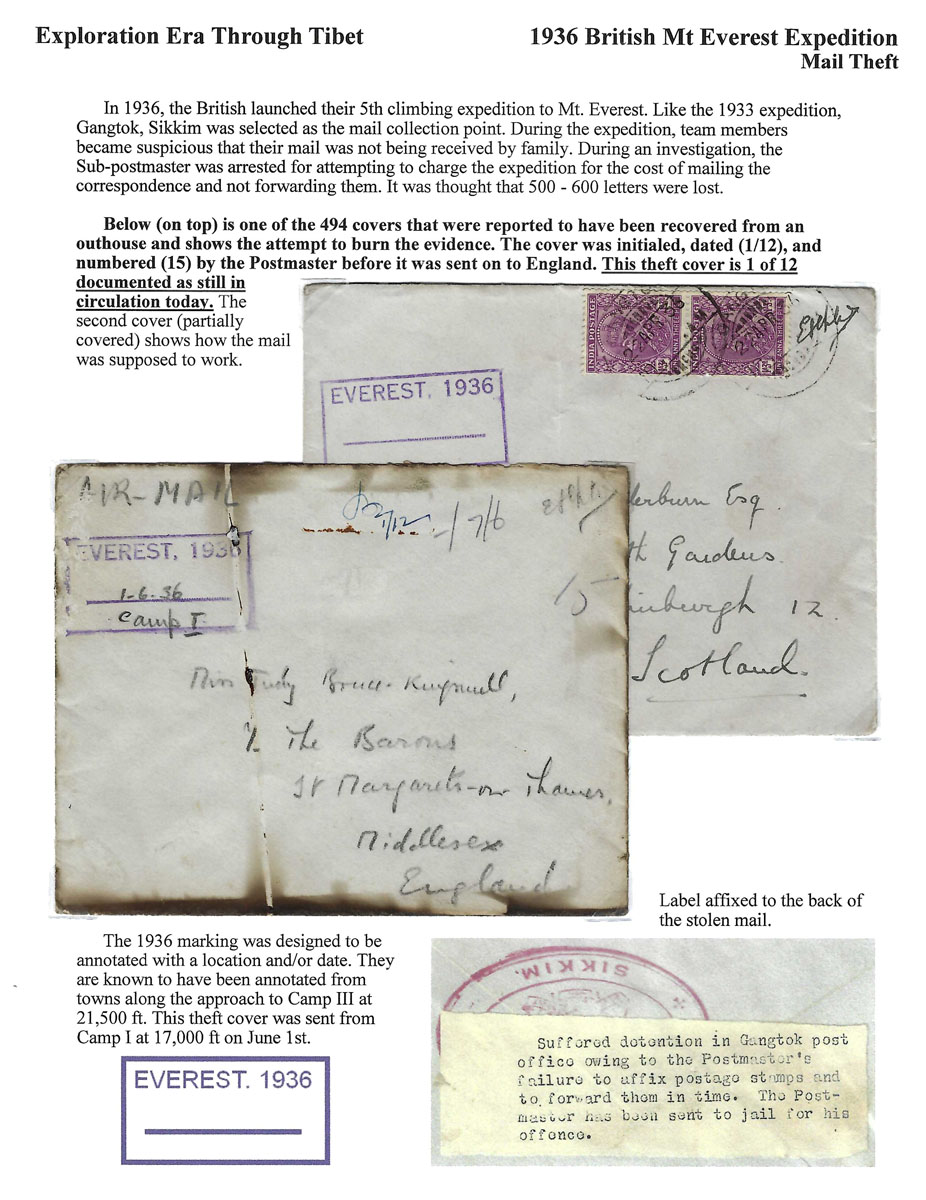 Exploration Era Through Tibet
1936 British Mt Everest Expedition
Mail Theft
In 1936, the British launched their 5th climbing expedition to Mt. Everest. Like the 1933 expedition,
Gangtok, Sikkim was selected as the mail collection point. During the expedition, team members
became suspicious that their mail was not being received by family. During an investigation, the
Sub-postmaster was arrested for attempting to charge the expedition for the cost of mailing the
correspondence and not forwarding them. It was thought that 500 - 600 letters were lost.
Below (on top) is one of the 494 covers that were reported to have been recovered from an
outhouse and shows the attempt to burn the evidence. The cover was initialed, dated (1/12), and
numbered (15) by the Postmaster before it was sent on to England. This theft cover is 1 of 12
documented as still in
circulation today. The
second cover (partially
covered) shows how the mail
was supposed to work.
INDIA POSTAGE
EVEREST. 1936
erburn Esq
th Gardens.
inburgh 12.
Scotland.
AIR-MAIL
1/12
-/7/6
EVEREST. 1936
1-6-36
Camp I
15
Miss Judy Bruce-
℅ The Barons
St Margarets-on-Thames,
Middlesex
England
Label affixed to the back of
the stolen mail.
The 1936 marking was designed to be
annotated with a location and/or date. They
are known to have been annotated from
towns along the approach to Camp III at
21,500 ft. This theft cover was sent from
Camp I at 17,000 ft on June 1st.
EVEREST. 1936
SIKKIM.
Suffered detention in Gangtok post
office owing to the Postmaster's
failure to affix postage stamps and
to forward them in time. The Post-
master has been sent to jail for his
offence.